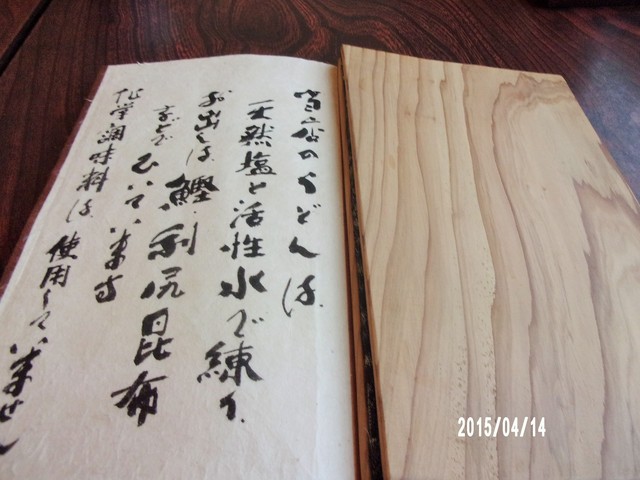 当店のうどんは、
天然塩と活性水で練り、
お出しは、鰹、利尻昆布
などで ひいています
化学調味料は、使用していません
2015/04/14